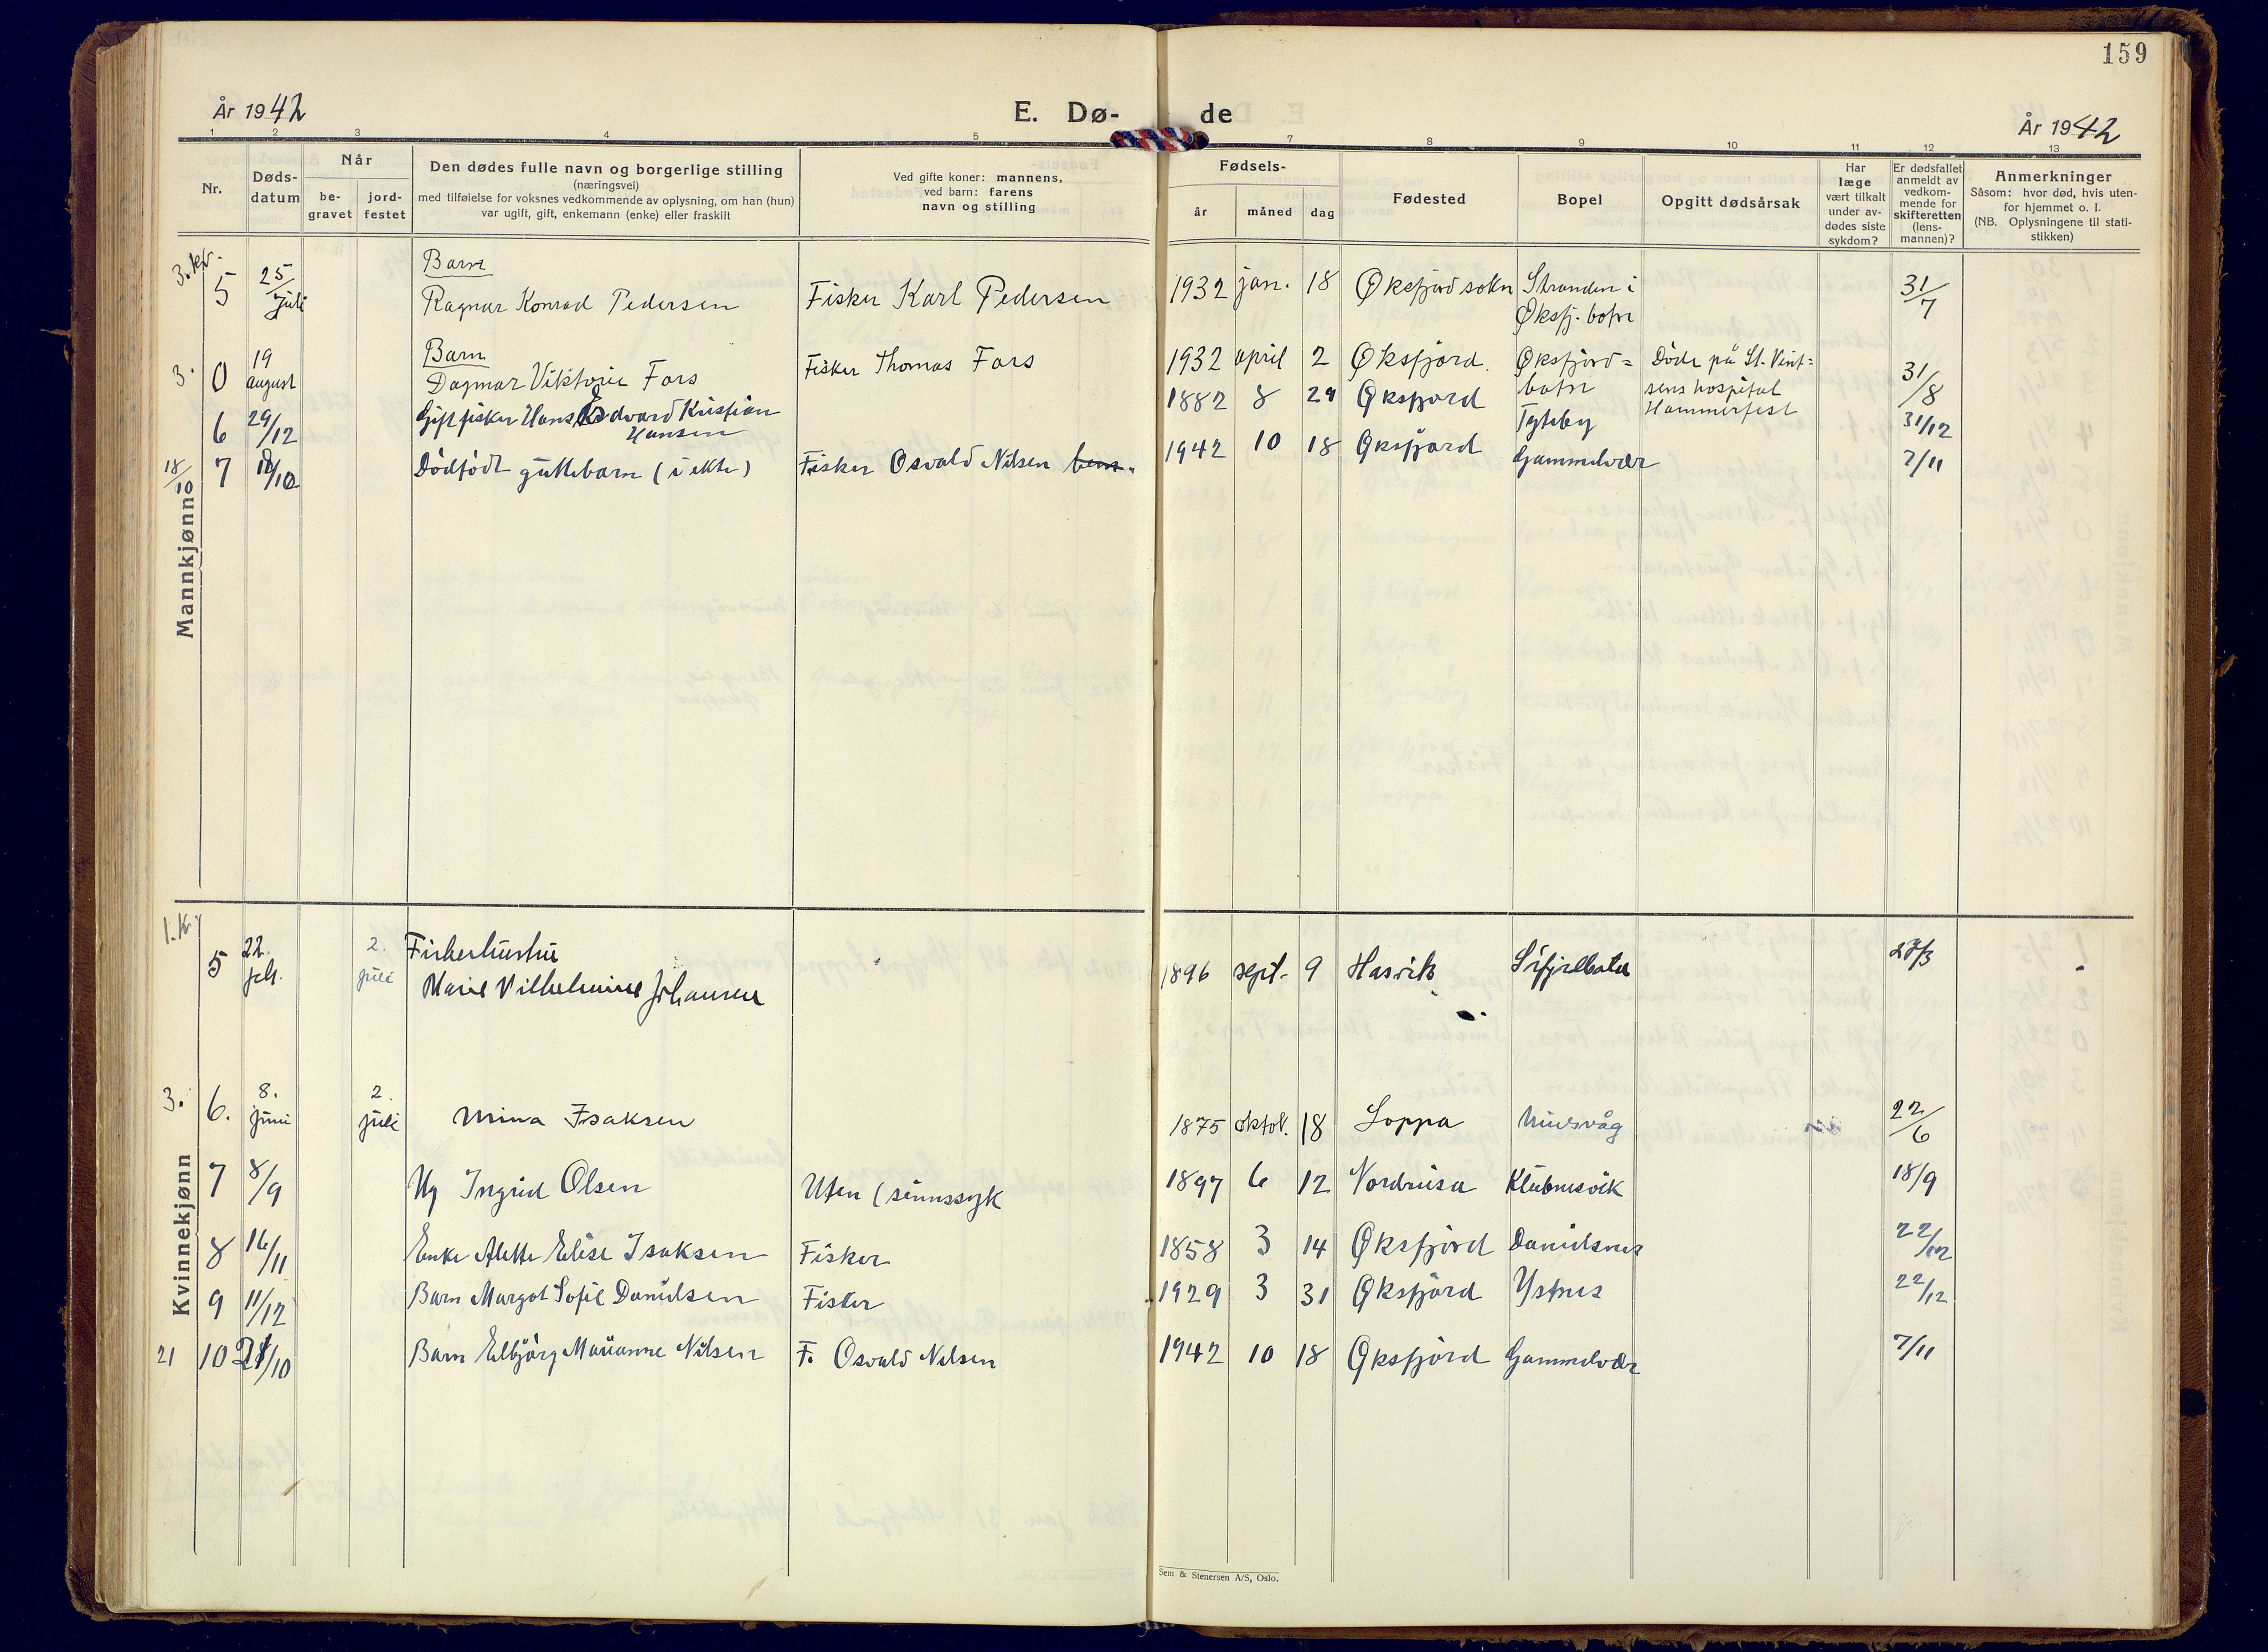 159
År 1942
E. Dø-
de
År 1942
1 2 3 4 5 7 8 9 10 11 12 13
Nr.
Døds-
datum
Når
be-
gravet
jord-
festet
Den dødes fulle navn og borgerlige stilling
(næringsvei)
med tilføielse for voksnes vedkommende av oplysning, om han (hun)
var ugift, gift, enkemann (enke) eller fraskilt
Ved gifte koner: mannens,
ved barn: farens
navn og stilling
Fødsels-
år måned dag
Fødested
Bopel
Opgitt dødsårsak
Har
læge
vært tilkalt
under av-
dødes siste
sykdom?
Er dødsfallet
anmeldt av
vedkom-
mende for
skifteretten
(lens-
mannen)?
Anmerkninger
Såsom: hvor død, hvis uten-
for hjemmet o. l.
(NB. Oplysningene til stati-
stikken)
Mannkjønn
3. kv.
5 25/juli
Barn
Ragnar Konrad Pedersen Fisker Karl Pedersen 1932 jan. 18 Øksfjord sokn Stranden i
Øksfj. botn 31/7
3. 0 19 august
Barn
Dagmar Viktorie Fors Fisker Thomas Fors 1932 april 2 Øksfjord. Øksfjord=
botn Døde på St. Vint=
sens hospital
Hammerfest 31/8
6 29/12 Gift fisker Hans Edvard Kristian
Hansen 1882 8 29 Øksfjord Tyteby 31/12
18/10 7 18/10 Dødfødt guttebarn (i ekte) Fisker Osvald Nilsen 1942 10 18 Øksfjord Gammelvær 7/11
Kvinnekjønn
1. kv
5 22. feb. 2. juli Fiskerhustru
Marie Vilhelmine Johansen 1896 sept. 9 Hasvik 27/3
3. 6. 8. juni 2. juli Mina Isaksen 1875 oktob. 18 Loppa 22/6
7 8/9 Ug Ingrid Olsen Uten (sinnssyk 1897 6 12 Nordreisa 18/9
8 16/11 Enke Alette Elise Isaksen Fisker 1858 3 14 Øksfjord Danielsnes 22/12
9 11/12 Barn Margot Sofie Danielsen Fisker 1929 3 31 Øksfjord Ystnes 22/12
21 10 21/10 Barn Elbjörg Marianne Nilsen F. Osvald Nilsen 1942 10 18 Øksfjord Gammelvær 7/11
Sem & Stenersen A/S, Oslo.